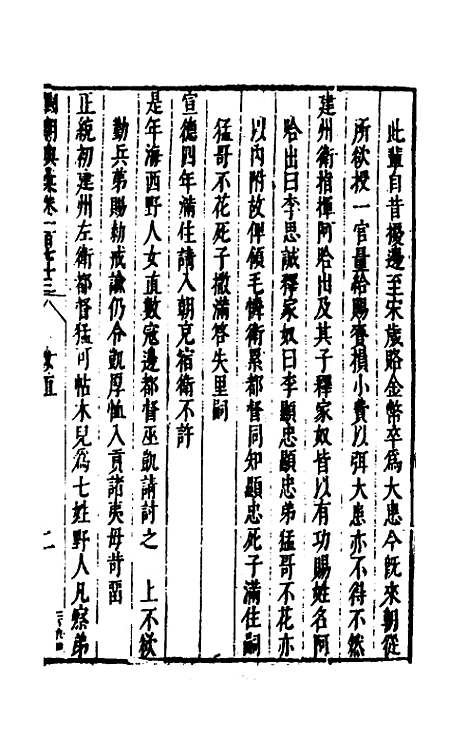 此輩自昔擾邊至宋歲賂金幣卒爲大患今旣來朝從
所欲授一官量給賜賚捐小費以弭大患亦不得不然
建州衛指揮阿哈出及其子釋家奴皆以有功賜姓名阿
哈出曰李思誠釋家奴曰李顯忠顯忠弟猛哥不花亦
以內附故俾領毛憐衛累都督同知顯忠死子滿住嗣
猛哥不花死子撒滿答失里嗣
宣德四年滿住請入朝充宿衛不許
是年海西野人女直數寇邊都督巫凱請討之 上不欲
勤兵第賜勑戒諭仍令凱厚恤入貢諸夷毋苛畱
正統初建州左衛都督猛可帖木兒爲七姓野人凡察弟
國朝典彙卷一百七十三 女直 二